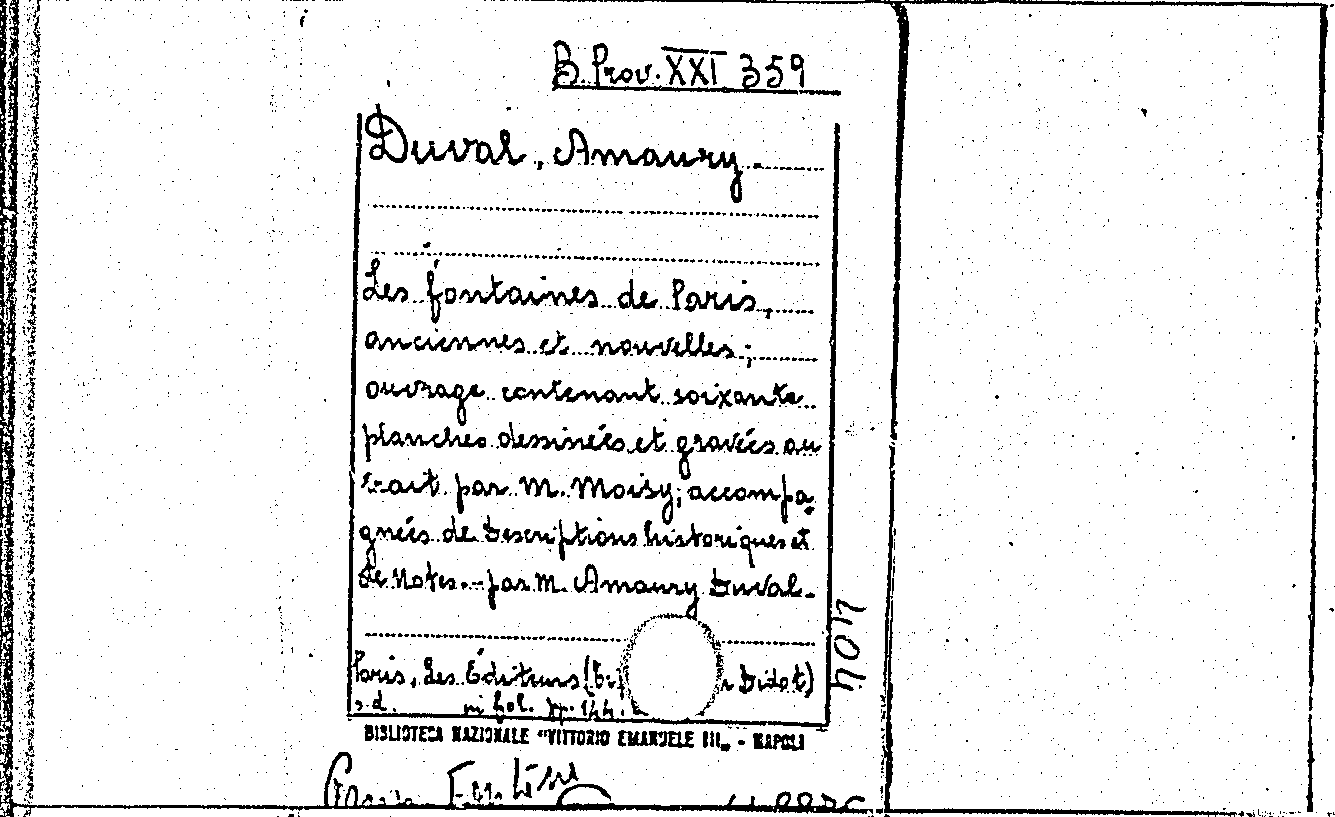 B. Prov. XXI 359
Duval, Amaury.
Les fontaines de Paris,
anciennes et nouvelles;
ouvrage contenant soixante
planches dessinées et gravées au
trait par M. Moisy; accompa-
gnées de descriptions historiques et
de notes. - par M. Amaury Duval.
Paris, Les Éditeurs Didot)
s.d. in fol. pp. 144.
404
BIBLIOTECA NAZIONALE "VITTORIO EMANUELE III" - NAPOLI